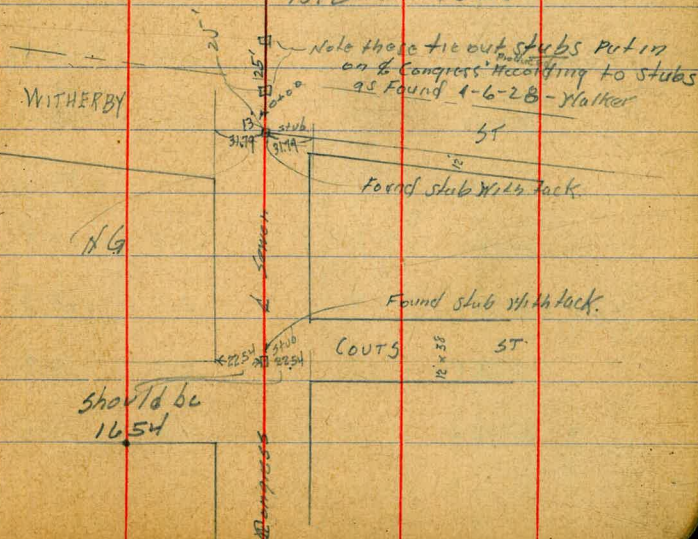 Note these tie out stubs Put in
on ⅊ Congress According to stubs
as Found 4-6-28 - Walker
WITHERBY
25'
13
stub
31.79 31.79
ST
12'
Found stub With tack.
NG
Found stub With tack.
stub
22.54 22.54
COUTS
12' x 38
ST
Should be
16 54
Congress